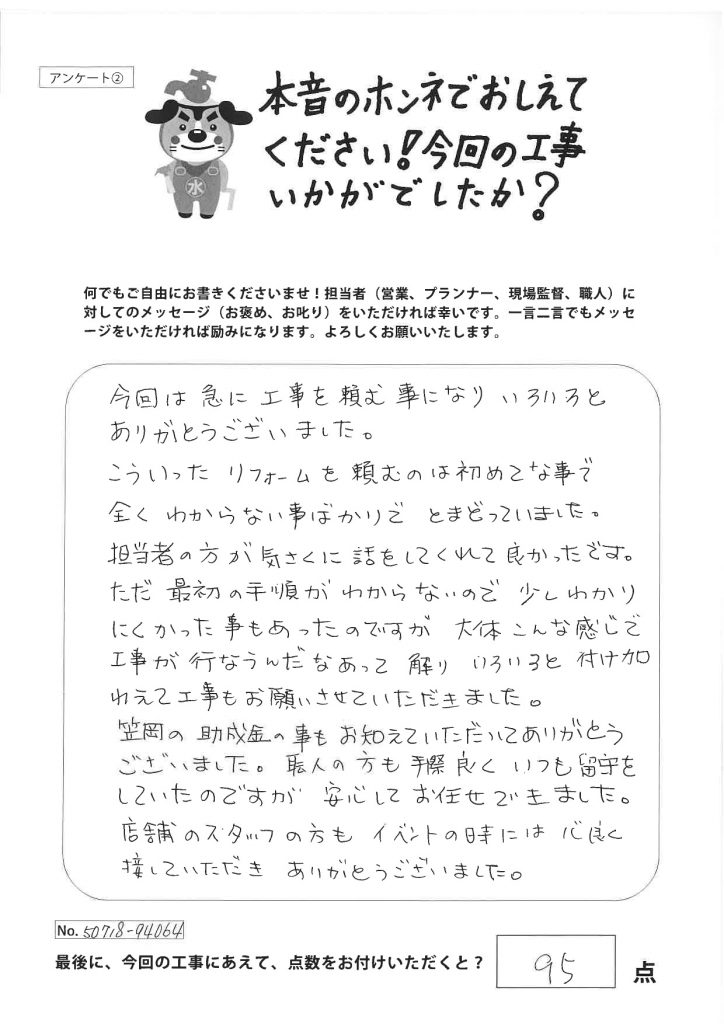 アンケート②
本音のホンネでおしえて
ください!今回の工事
いかがでしたか?
水
何でもご自由にお書きくださいませ!担当者(営業、プランナー、現場監督、職人)に
対してのメッセージ(お褒め、お叱り)をいただければ幸いです。一言二言でもメッセ
ージをいただければ励みになります。よろしくお願いいたします。
今回は 急に 工事を 頼む 事になり いろいろと
ありがとうございました。
こういった リフォームを 頼むのは初めてな事で
全く わからない事ばかりで とまどっていました。
担当者の方が 気さくに 話をしてくれて 良かったです。
ただ 最初の手順が わからないので 少しわかり
にくかった 事もあったのですが 大体 こんな感じで
工事が 行なうんだなあって 解り いろいろと 付け加
わえて 工事もお願いさせていただきました。
笠岡の 助成金の事も お知えていただいてありがとう
ございました。職人の方も 手際良く いつも 留守を
していたのですが 安心して お任せできました。
店舗のスタッフの方も イベントの時には 心良く
接していただき ありがとうございました。
No. 50718-94064
最後に、今回の工事にあえて、点数をお付けいただくと? 95 点